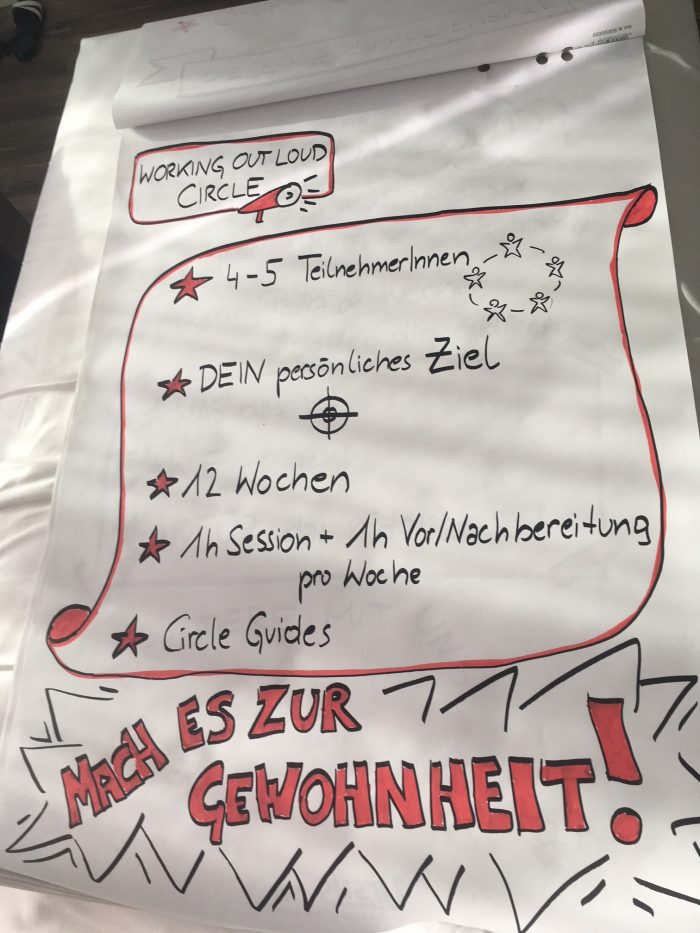 WORKING OUT LOUD
CIRCLE
4-5 TeilnehmerInnen
DEIN persönliches Ziel
12 Wochen
1h Session + 1h Vor/Nachbereitung
pro Woche
Circle Guides
MACH ES ZUR
GEWOHNHEIT!